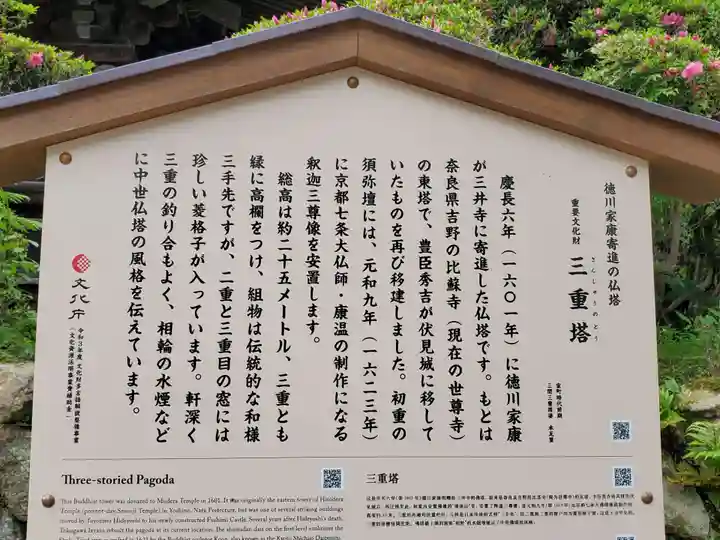 徳川家康寄進の仏塔
重要文化財
三重塔
さんじゅうのとう
室町時代前期
三間三重塔婆 本瓦葺
慶長六年（一六〇一年）に徳川家康
が三井寺に寄進した仏塔です。もとは
奈良県吉野の比蘇寺（現在の世尊寺）
の東塔で、豊臣秀吉が伏見城に移して
いたものを再び移建しました。初重の
須弥壇には、元和九年（一六二三年）
に京都七条大仏師・康温の制作になる
釈迦三尊像を安置します。
総高は約二十五メートル、三重とも
縁に高欄をつけ、組物は伝統的な和様
三手先ですが、二重と三重目の窓には
珍しい菱格子が入っています。軒深く
三重の釣り合もよく、相輪の水煙など
に中世仏塔の風格を伝えています。
文化庁
令和3年度 文化財多言語解説整備事業
（文化資源活用事業費補助金）
Three-storied Pagoda
This Buddhist tower was donated to Miidera Temple in 1601. It was originally the eastern tower of Hisodera
Temple (present-day Sesonji Temple) in Yoshino, Nara Prefecture, but was one of several striking buildings
moved by Toyotomi Hideyoshi to his newly constructed Fushimi Castle. Several years after Hideyoshi's death,
Tokugawa Ieyasu rebuilt the pagoda at its current location.
三重塔